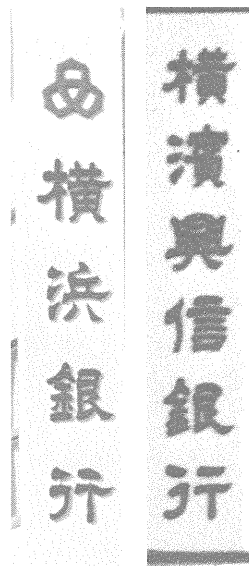 横濱興信銀行
横浜銀行